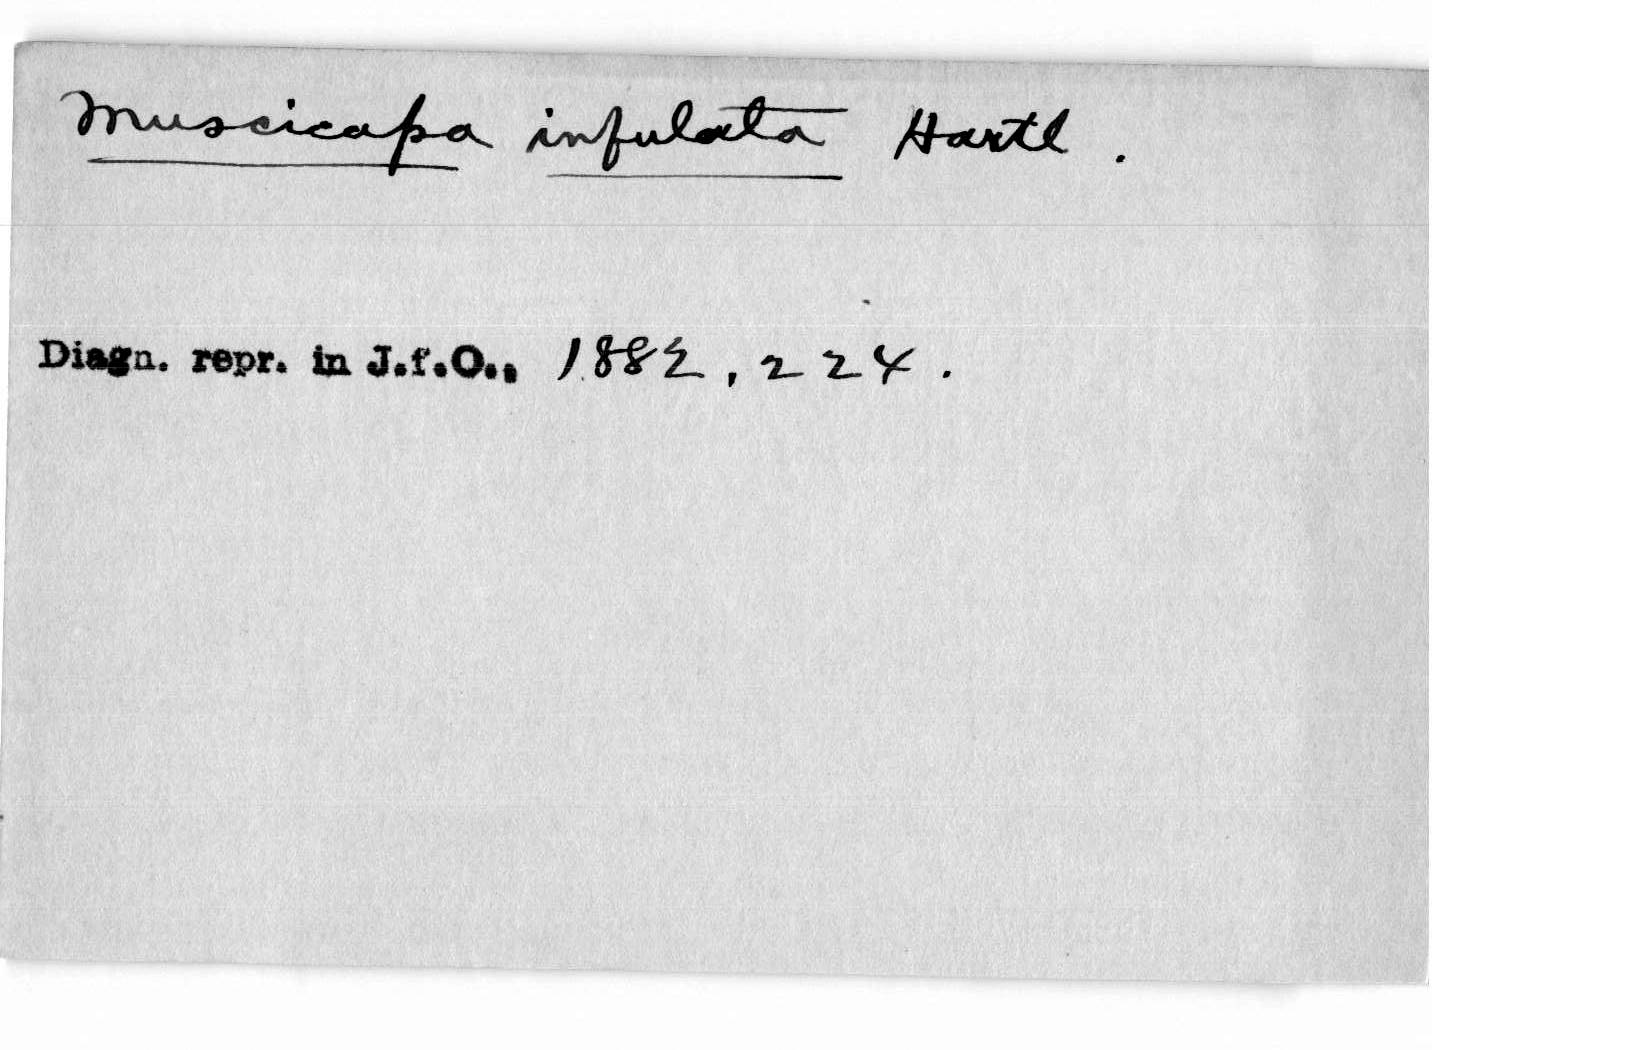 Muscicapa infulata Hartl.
Diagn. repr. in J.f.O., 1882, 224.